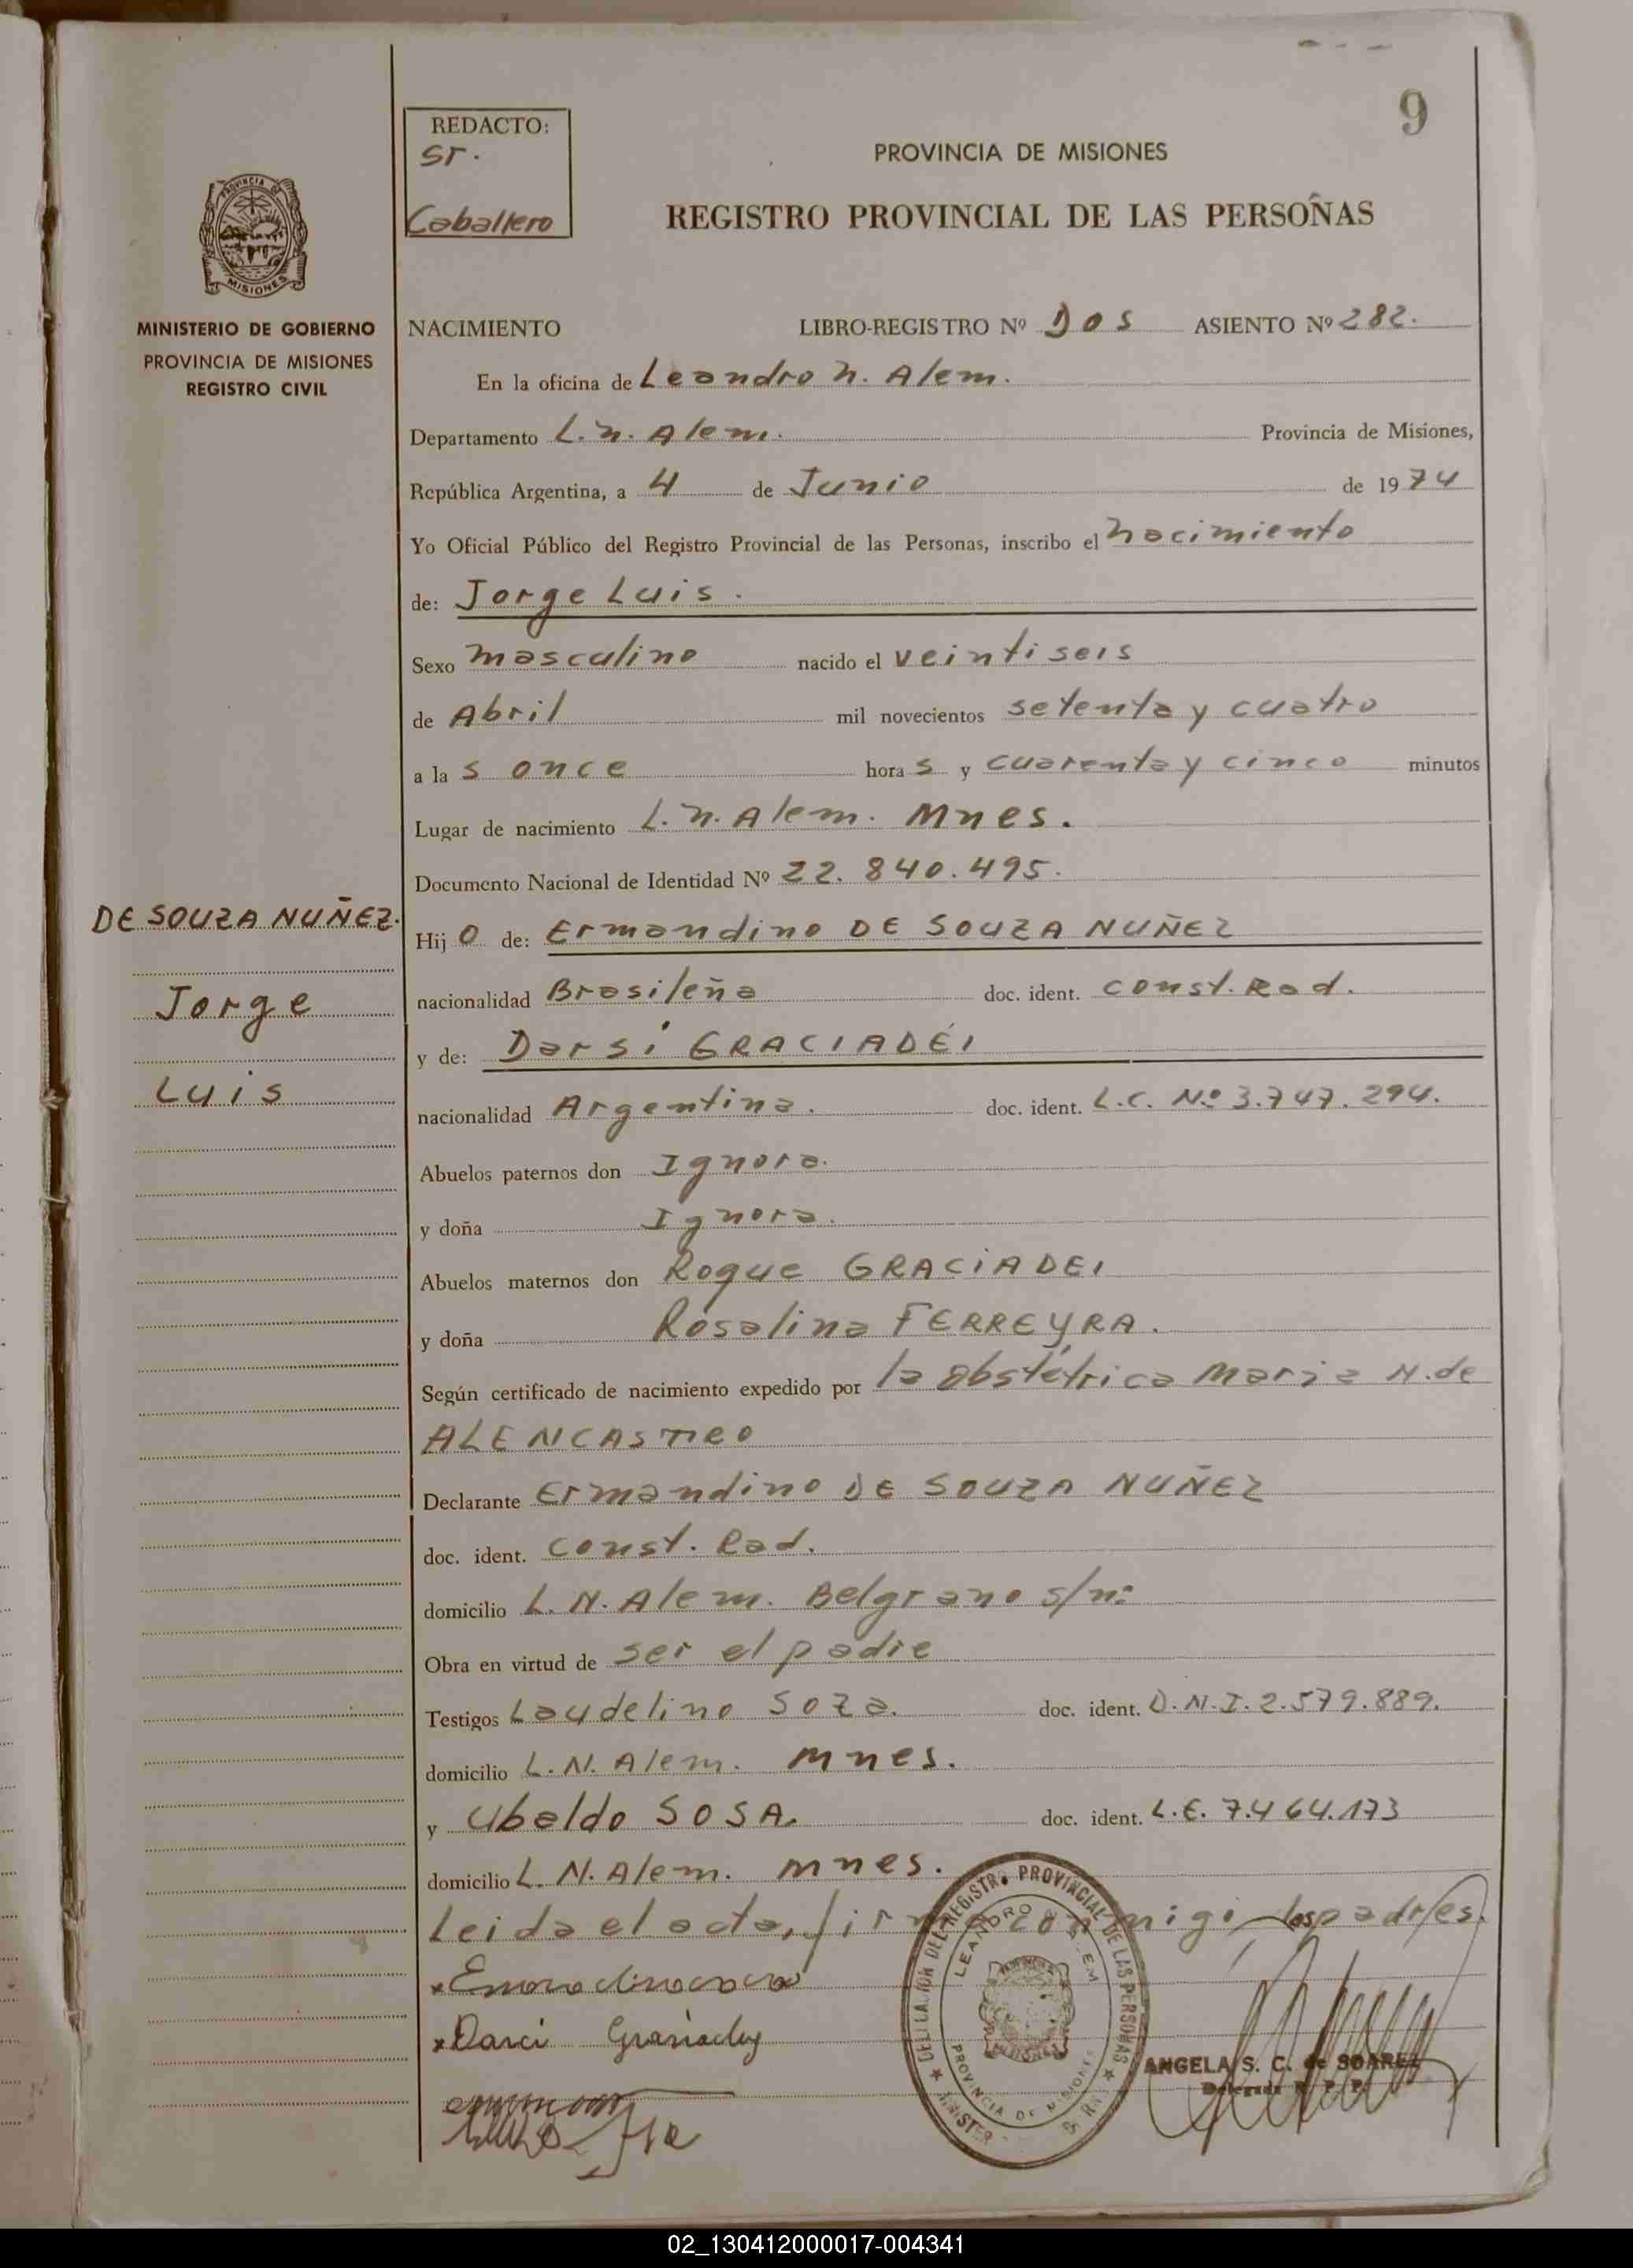 9
REDACTO:
Sr.
Caballero
PROVINCIA DE MISIONES
REGISTRO PROVINCIAL DE LAS PERSOÑAS
PROVINCIA DE
MISIONES
MINISTERIO DE GOBIERNO
PROVINCIA DE MISIONES
REGISTRO CIVIL
NACIMIENTO LIBRO-REGISTRO Nº Dos ASIENTO Nº 282.
En la oficina de Leandro N. Alem.
Departamento L. N. Alem. Provincia de Misiones,
República Argentina, a 4 de Junio de 1974
Yo Oficial Público del Registro Provincial de las Personas, inscribo el nacimiento
de: Jorge Luis.
Sexo masculino nacido el veintiseis
de Abril mil novecientos setenta y cuatro
a las once horas y cuarenta y cinco minutos
Lugar de nacimiento L. N. Alem. Mnes.
Documento Nacional de Identidad Nº 22.840.495.
DE SOUZA NUÑEZ.
Jorge
Luis
Hijo de: Ermandino DE SOUZA NUÑEZ
nacionalidad Brasileña doc. ident. const. Rad.
y de: Darsi GRACIADÉI
nacionalidad Argentina. doc. ident. L.C. Nº 3.747.294.
Abuelos paternos don Ignora.
y doña Ignora.
Abuelos maternos don Roque GRACiADEI
y doña Rosalina FERREYRA.
Según certificado de nacimiento expedido por la obstétrica Maria N. de
ALENCASTRO
Declarante Ermandino DE SOUZA NUÑEZ
doc. ident. const. Rad.
domicilio L. N. Alem. Belgrano s/nº
Obra en virtud de ser el padre
Testigos Laudelino SOZa. doc. ident. D.N.I. 2.579.889.
domicilio L. N. Alem. mnes.
y Ubaldo SOSA. doc. ident. L.E. 7.464.173
domicilio L. N. Alem. mnes.
Leida el acta, firma conmigo los padres.
DELEGACION DEL REGISTRO PROVINCIAL DE LAS PERSONAS
LEANDRO N. ALEM
PROVINCIA DE MISIONES
x Darci
ANGELA S. C. de SOAREZ
Delegada R. P. P.
02_130412000017-004341